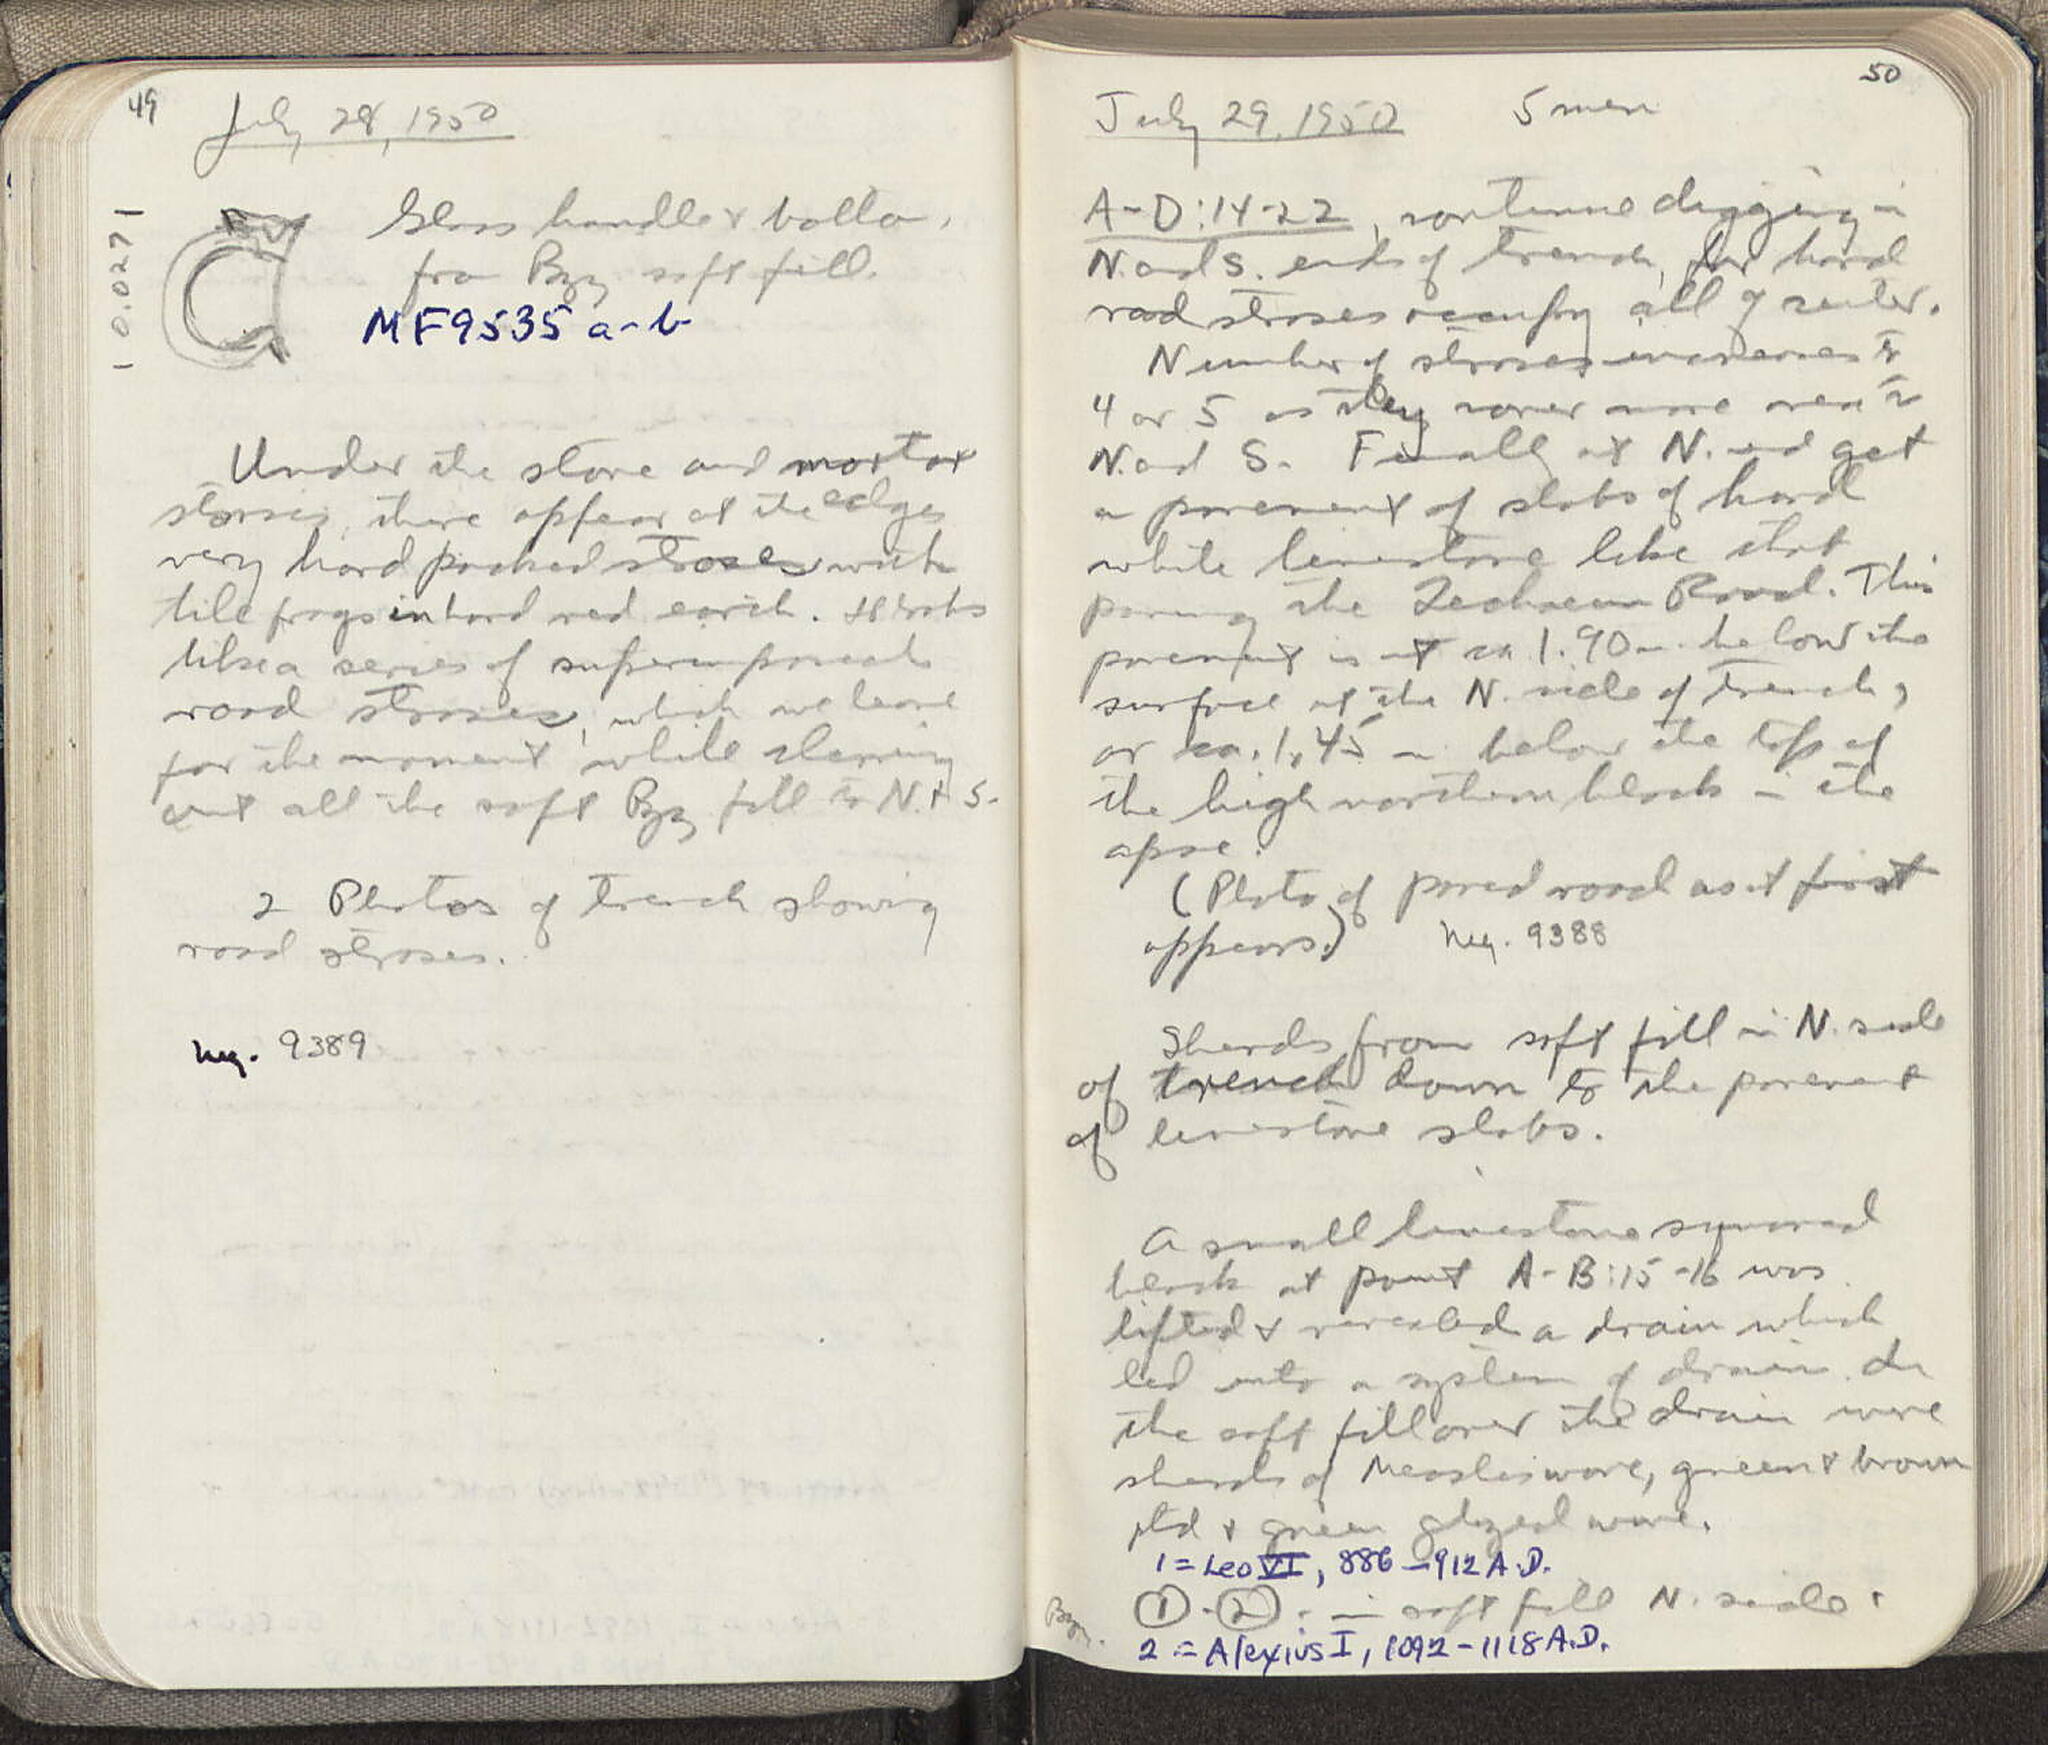 49
July 28, 1950
10.0271
Glass handle & bottom,
from Byz soft fill.
MF9535 a-b
Under the stone and mortar
stroses, there appear at the edges
very hard packed stroses with
tile frags in hard red earth. It looks
like a series of superimposed
road stroses, which we leave
for the moment while cleaning
out all the soft Byz fill to N. & S.
2 Photos of trench showing
road stroses.
Neg. 9389
50
July 29, 1950 5 men
A-D:14-22, continue digging in
N. and S. ends of trench, for hard
road stroses occupy all of center.
Number of stroses increases to
4 or 5 as they cover more area to
N. and S. Finally at N. end get
a pavement of slabs of hard
white limestone like that
paving the Lechaeum Road. This
pavement is at ca 1.90 m. below the
surface at the N. side of trench,
or ca. 1.45 m below the top of
the high northern block in the
apse.
(Photo of paved road as it first
appears.) Neg. 9388
Sherds from soft fill in N. side
of trench down to the pavement
of limestone slabs.
A small limestone squared
block at point A-B:15-16 was
lifted & revealed a drain which
led into a system of drains. In
the soft fill over the drain were
sherds of Measles ware, green & brown
ptd & green glazed ware.
1 = Leo VI, 886-912 A.D.
Byz. 1 - 2 . in soft fill N. side.
2 = Alexius I, 1092-1118 A.D.